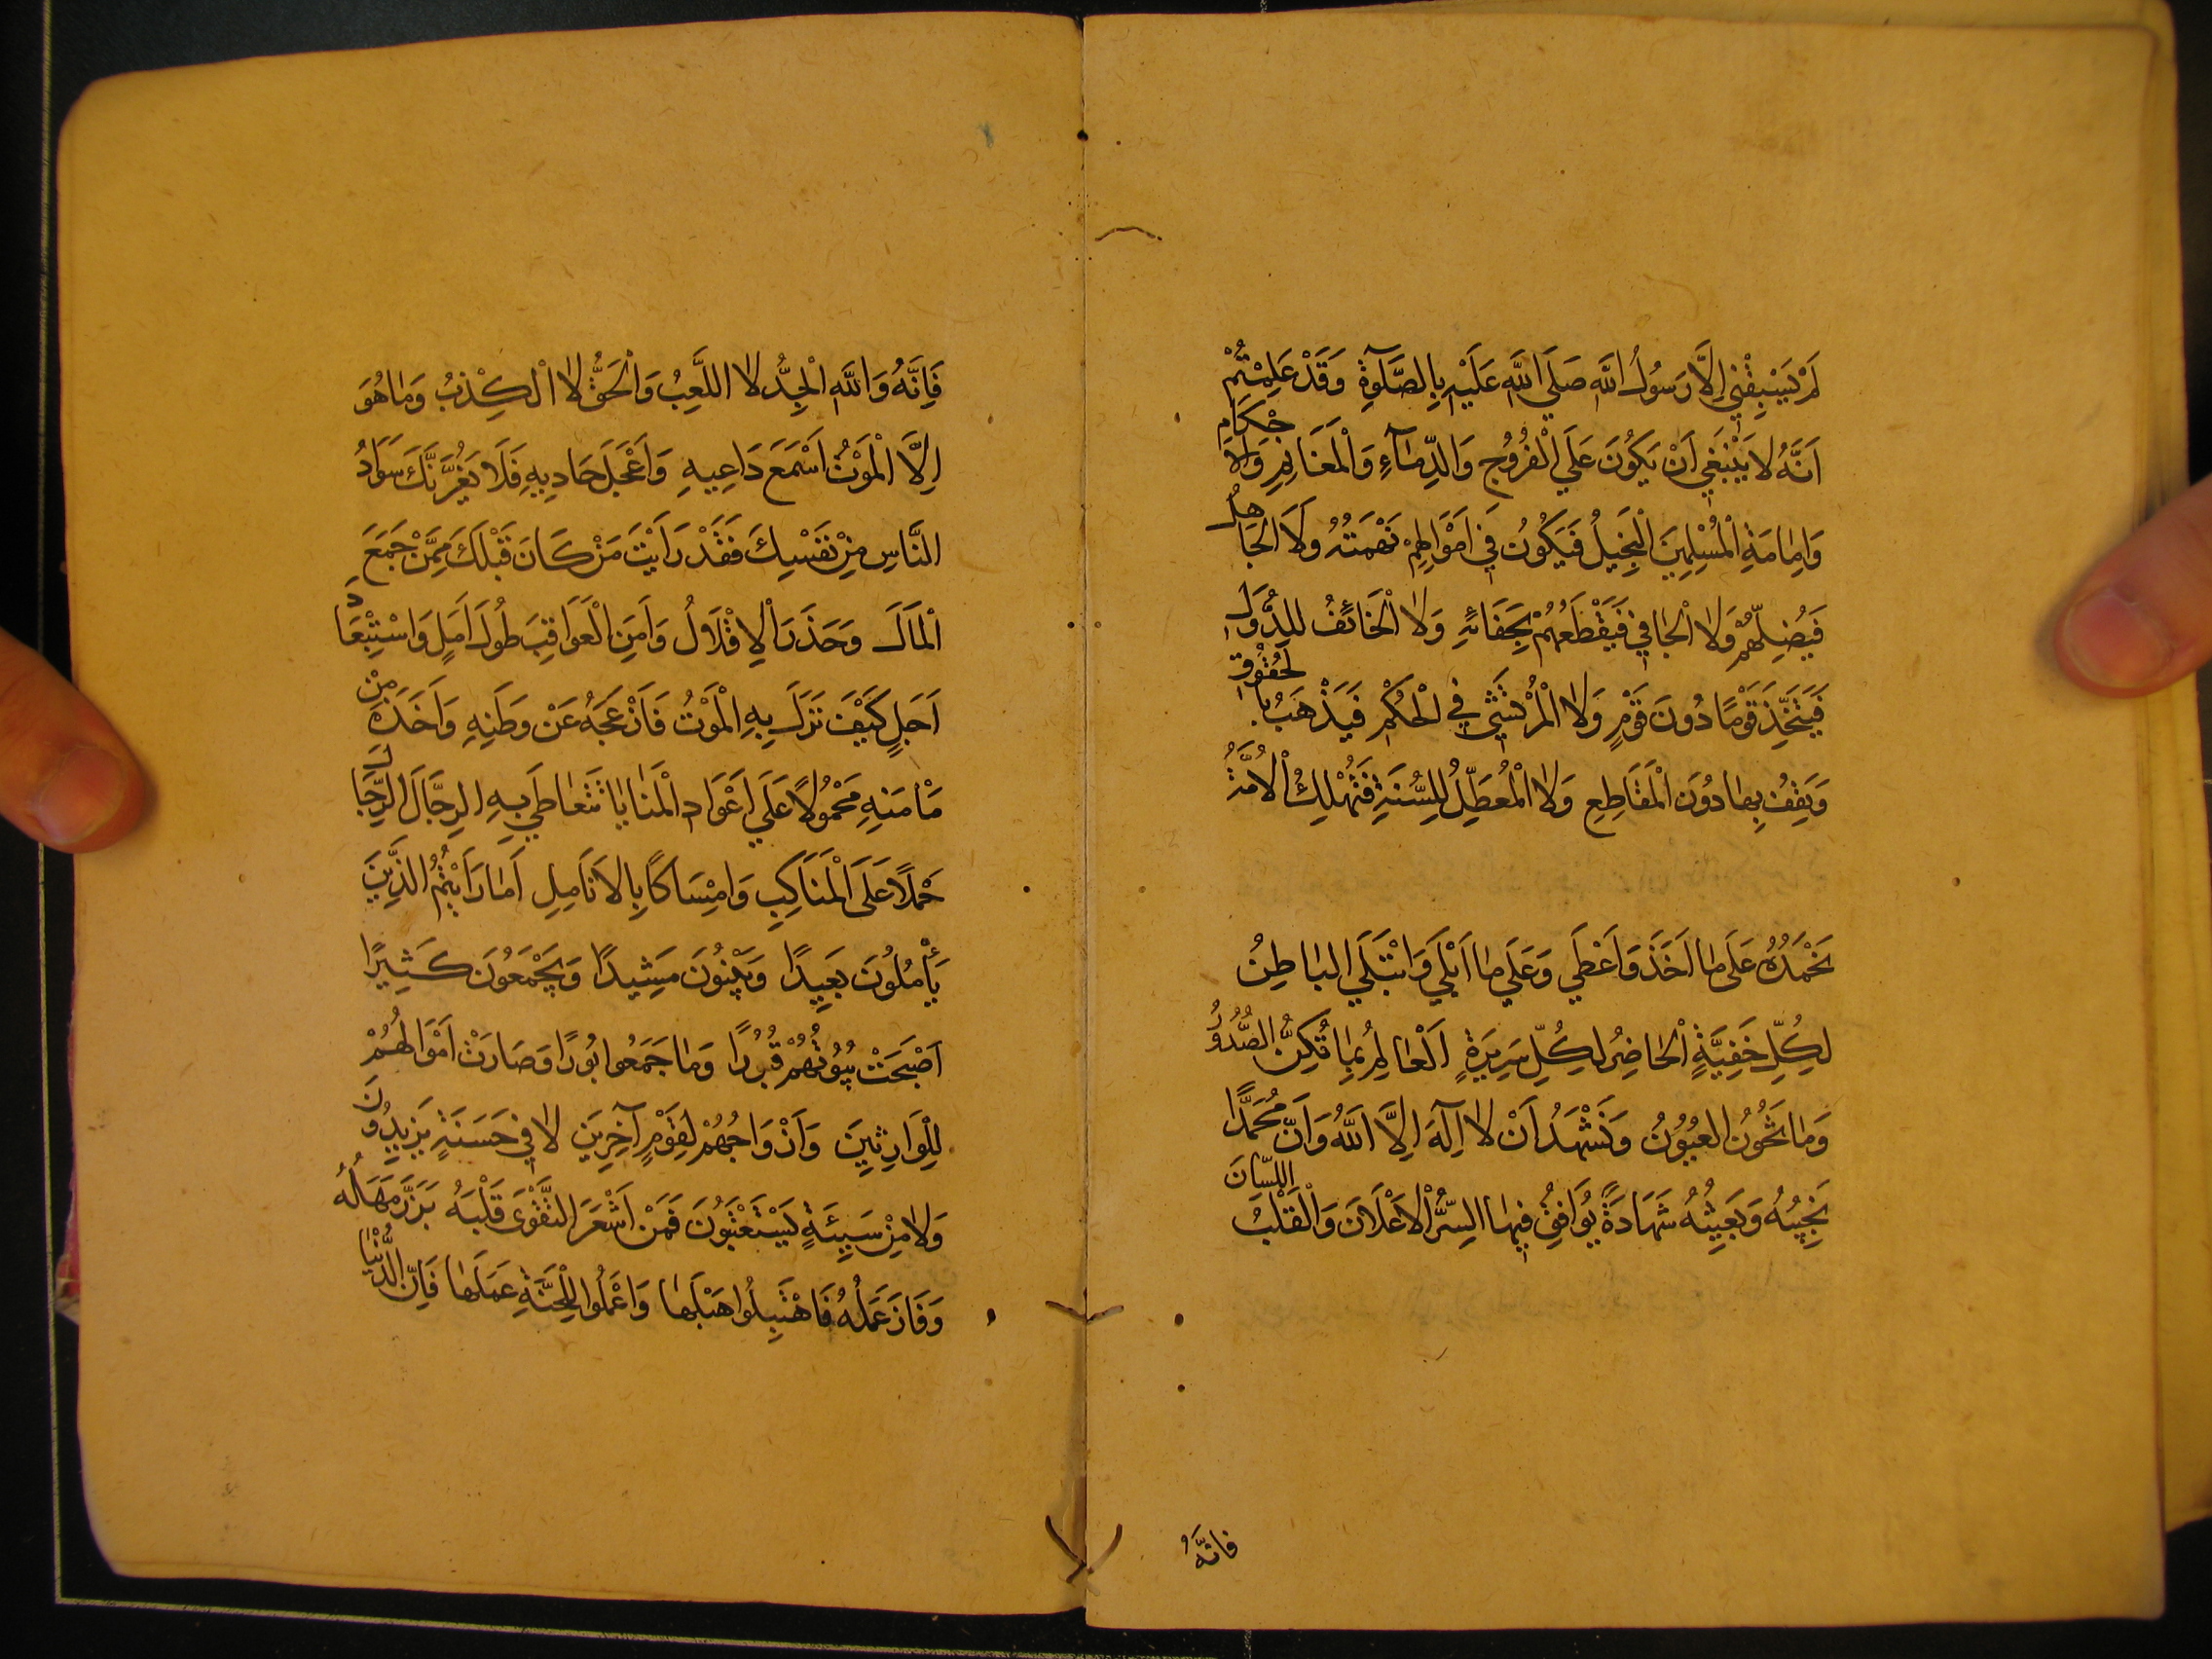 لَمْ يَسْبِقْنِي اِلَّا رَسُولُ اللَّهِ صَلَّي اللَّهِ عَلَيْهِ بِالصَّلٰوةِ وَقَدْ عَلِمْتُمْ
اَنَّهُ لا يَنْبَغِي اَنْ يَكُونَ عَلَي الْفُرُوجِ وَالدِّمٰآءِ وَالْمَغَانِمِ وَالاَحْكَامِ
وَاِمٰامَةِ الْمُسْلِمِينَ الْبَخِيلُ فَيَكُونُ فِي اَمْوَالِهِمْ نَهْمَتُهُ وَلَا الْجَاهِلُ
فَيُضِلَّهُمْ وَلاٰ الْجٰافِي فَيَقْطَعَهُمْ بِجَفَائِهِ وَلاٰ الْخَائِفُ لِلدُّوَلِ
فَيَتَّخِذَ قَوْمًا دُونَ قَوْمٍ وَلاٰ الْمُرْتَشِي فِي الْحُكْمِ فَيَذْهَبُ بِالْحُقُوقِ
وَيَقِفُ بِهٰا دُونَ الْمَقَاطِعِ وَلاٰ الْمُعَطِّلُ لِلسُّنَّةِ فَيُهْلِكُ الْاُمَّةَ
نَحْمَدُهُ عَلَى مٰا اَخَذَ وَاَعْطَي وَعَلَي مٰا اَبْلَي وَابْتَلَي الْبٰاطِنُ
لِكُلِّ خَفِيَّةٍ الْحٰاضِرُ لِكُلِّ سَرِيرَةٍ اَلْعٰالِمُ بِمٰا تُكِنُّ الصُّدُورُ
وَمٰا تَخُونُ الْعُيُونُ وَنَشْهَدُ اَنْ لاٰ اِلٰهَ اِلَّا اللَّهُ وَاَنَّ مُحَمَّدًا
نَجِيبُهُ وَبَعِيثُهُ شَهَادَةً يُوَافِقُ فِيهٰا السِّرُّ الْاَعْلَانَ وَالْقَلْبُ اللِّسَانَ
فَانَّهُ
فَاِنَّهُ وَاللَّهِ الْجِدُّ لاٰ اللَّعِبُ وَالْحَقُّ لاٰ الْكِذْبُ وَمٰا هُوَ
اِلَّا الْمَوْتُ اَسْمَعَ دَاعِيهِ وَاَعْجَلَ حَادِيهِ فَلَا يَغُرَّنَّكَ سَوَادُ
النَّاسِ مِنْ نَفْسِكَ فَقَدْ رَاَيْتَ مَنْ كَانَ قَبْلَكَ مِمَّنْ جَمَعَ
الْمَالَ وَحَذَرَ الْاِقْلَالُ وَاَمِنَ الْعَوَاقِبَ طُولَ اَمَلٍ وَاسْتِبْعَادِ
اَجَلٍ كَيْفَ نَزَلَ بِهِ الْمَوْتُ فَاَزْعَجَهُ عَنْ وَطَنِهِ وَاَخَذَهُ مِنْ
مَاْمَنِهِ مَحْمُولًا عَلَي اَعْوَادِ الْمَنٰايٰا تَتَعٰاطَي بِهِ الرِّجَالَ الرِّجَالُ
حَمْلًا عَلَى الْمَنَاكِبِ وَامْسَاكًا بِالاَنَامِلِ اَمٰا رَاَيْتُمُ الَّذِينَ
يَأْمُلُونَ بَعِيدًا وَيَبْنُونَ مَشِيدًا وَيَجْمَعُونَ كَثِيرًا
اَصْبَحَتْ بُيُوتُهُمْ قُبُورًا وَمٰا جَمَعُوا بُورًا وَصَارَتْ اَمْوَالُهُمْ
لِلْوَارِثِينَ وَاَزْوَاجُهُمْ لِقَوْمٍ آخَرِينَ لاٰ فِي حَسَنَةٍ يَزِيدُونَ
وَلاٰ مِنْ سَيِئَةٍ يَسْتَعْتِبُونَ فَمَنْ اَشْعَرَ التَّقْوَى قَلْبَهُ بَرَّزَ مَهَلُهُ
وَفَازَ عَمَلُهُ فَاهْتَبِلُوا هَبْلَهٰا وَاعْمَلُوا لِلْجَنَّةِ عَمَلَهٰا فَاِنَّ الدُّنْيٰا